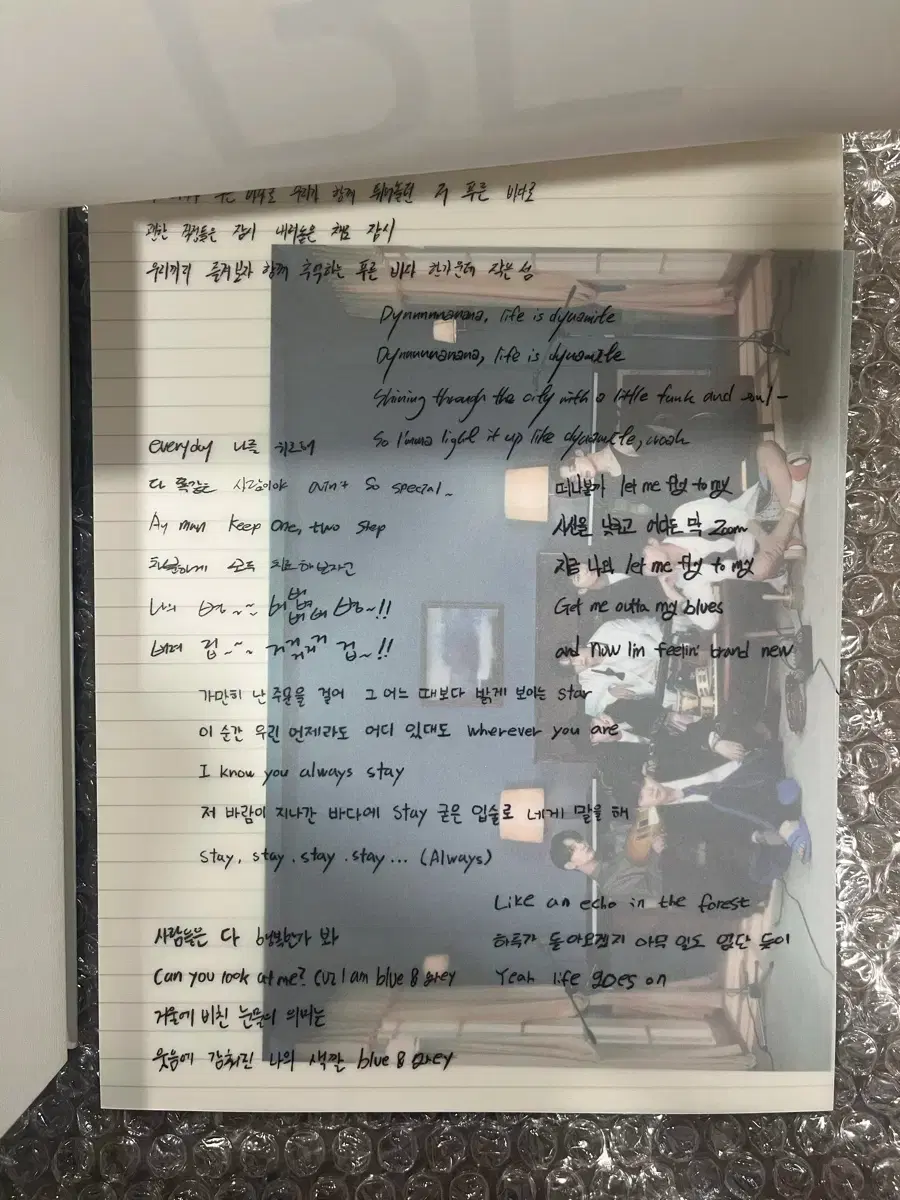 우리가 함께 뛰어놀던 저 푸른 바다로
괜한 걱정들은 잠시 내려놓은 채로 잠시
우리끼리 즐겨보자 함께 추억하는 푸른 바다 한가운데 작은 섬
Dynnnnnanana, life is dynamite
Dynnnnnanana, life is dynamite
Shining through the city with a little funk and soul-
So I'mma light it up like dynamite, woah
everyday 나를 위로해
다 똑같은 사람이야 ain't so special~
Ay man keep one, two step
차분하게 모두 치료해보자고
나의 병~~ 벼벼벼벼 병~!!
버려 겁~~ 거거거거 겁~!!
떠나볼까 let me fly to my
시선을 낮추고 어디든 막 zoom
지금 나와 let me fly to my
Get me outta my blues
and now I'm feelin' brand new
가만히 난 주문을 걸어 그 어느 때보다 밝게 보이는 star
이 순간 우린 언제라도 어디 있대도 wherever you are
I know you always stay
저 바람이 지나간 바다에 stay 굳은 입술로 네게 말을 해
stay, stay. stay. stay... (Always)
Like an echo in the forest
하루가 돌아오겠지 아무 일도 없단 듯이
Yeah life goes on
사람들은 다 행복한가 봐
Can you look at me? Cuz I am blue & grey
거울에 비친 눈물의 의미는
웃음에 감춰진 나의 색깔 blue & grey